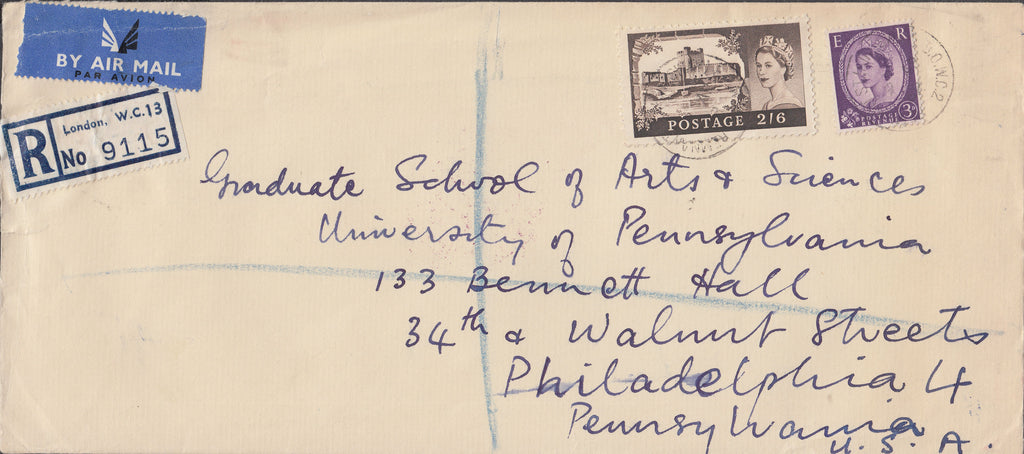 BY AIR MAIL
PAR AVION
R
London, W.C.13
No 9115
POSTAGE 2/6
E R
POSTAGE
3D
W.C.2
Graduate School of Arts & Sciences
University of Pennsylvania
133 Bennett Hall
34th & Walnut Streets
Philadelphia 4
Pennsylvania
U. S. A.